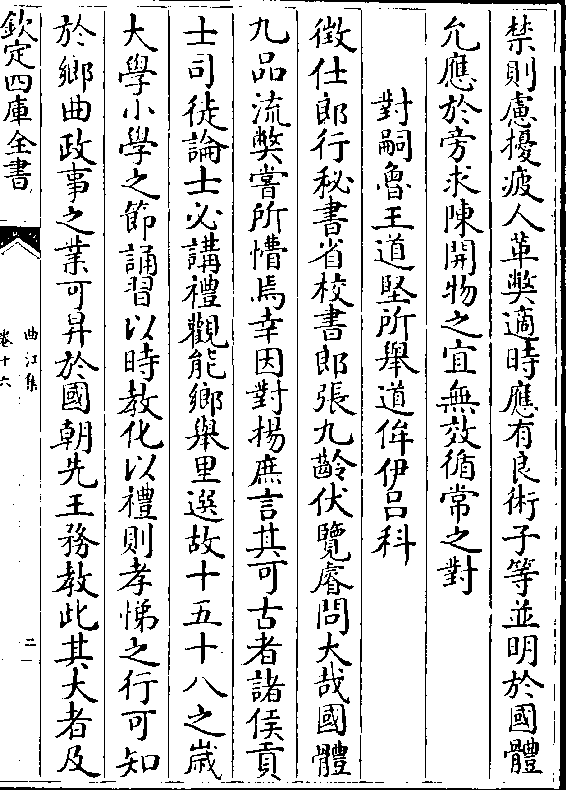 禁則慮擾疲人革弊適時應有良術子等並明於國體
允應於旁求陳開物之宜無效循常之對
對嗣魯王道堅所舉道侔伊呂科
徵仕郎行秘書省校書郎張九齡伏覽睿問大哉國體
九品流弊嘗所懵焉幸因對揚庶言其可古者諸侯貢
士司徒論士必講禮觀能鄉舉里選故十五十八之歲
大學小學之節誦習以時教化以禮則孝悌之行可知
於鄉曲政事之業可昇於國朝先王務教此其大者及
欽定四庫全書
曲江集
卷十六
二